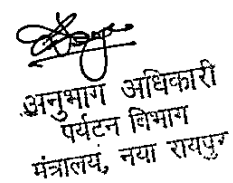 अनुभाग अधिकारी
पर्यटन विभाग
मंत्रालय, नया रायपुर